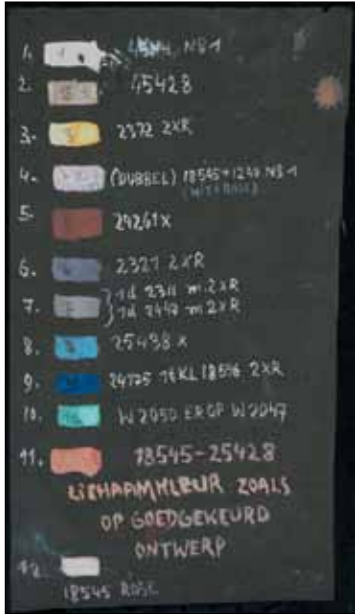 1. 4544 NB1
2. 45428
3. 2372 2XR
4. (DUBBEL) 18545+1247 NB1
5. 24261X
6. 2321 2XR
7. 1d 2311 m. 2XR
1d 2447 m 2XR
8. 25438 X
9. 24175 1eKL 18546 2XR
10. W2050 EROP W2047
11. 18545-25428
LICHAAMKLEUR ZOALS
OP GOEDGEKEURD
ONTWERP
12
18545 ROSE